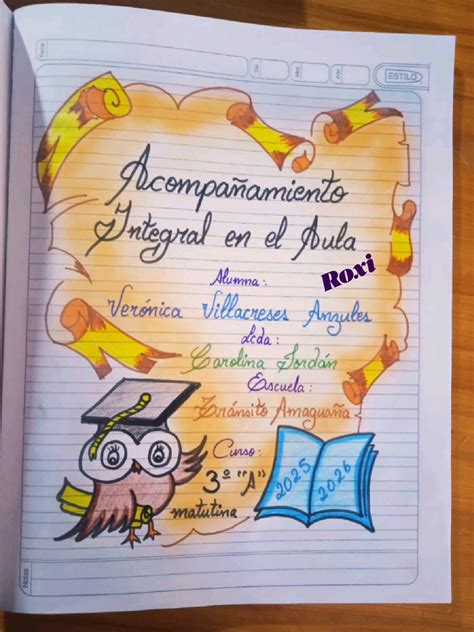 Fecha
Día
Mes
Año
ESTILO
Acompañamiento
Integral en el Aula
Roxi
Alumna:
Verónica Villacreses Angules
Lcda:
Carolina Jordán
Escuela:
Tránsito Amaguaña
Curso:
3º "A"
matutina
2025
2026
Notas